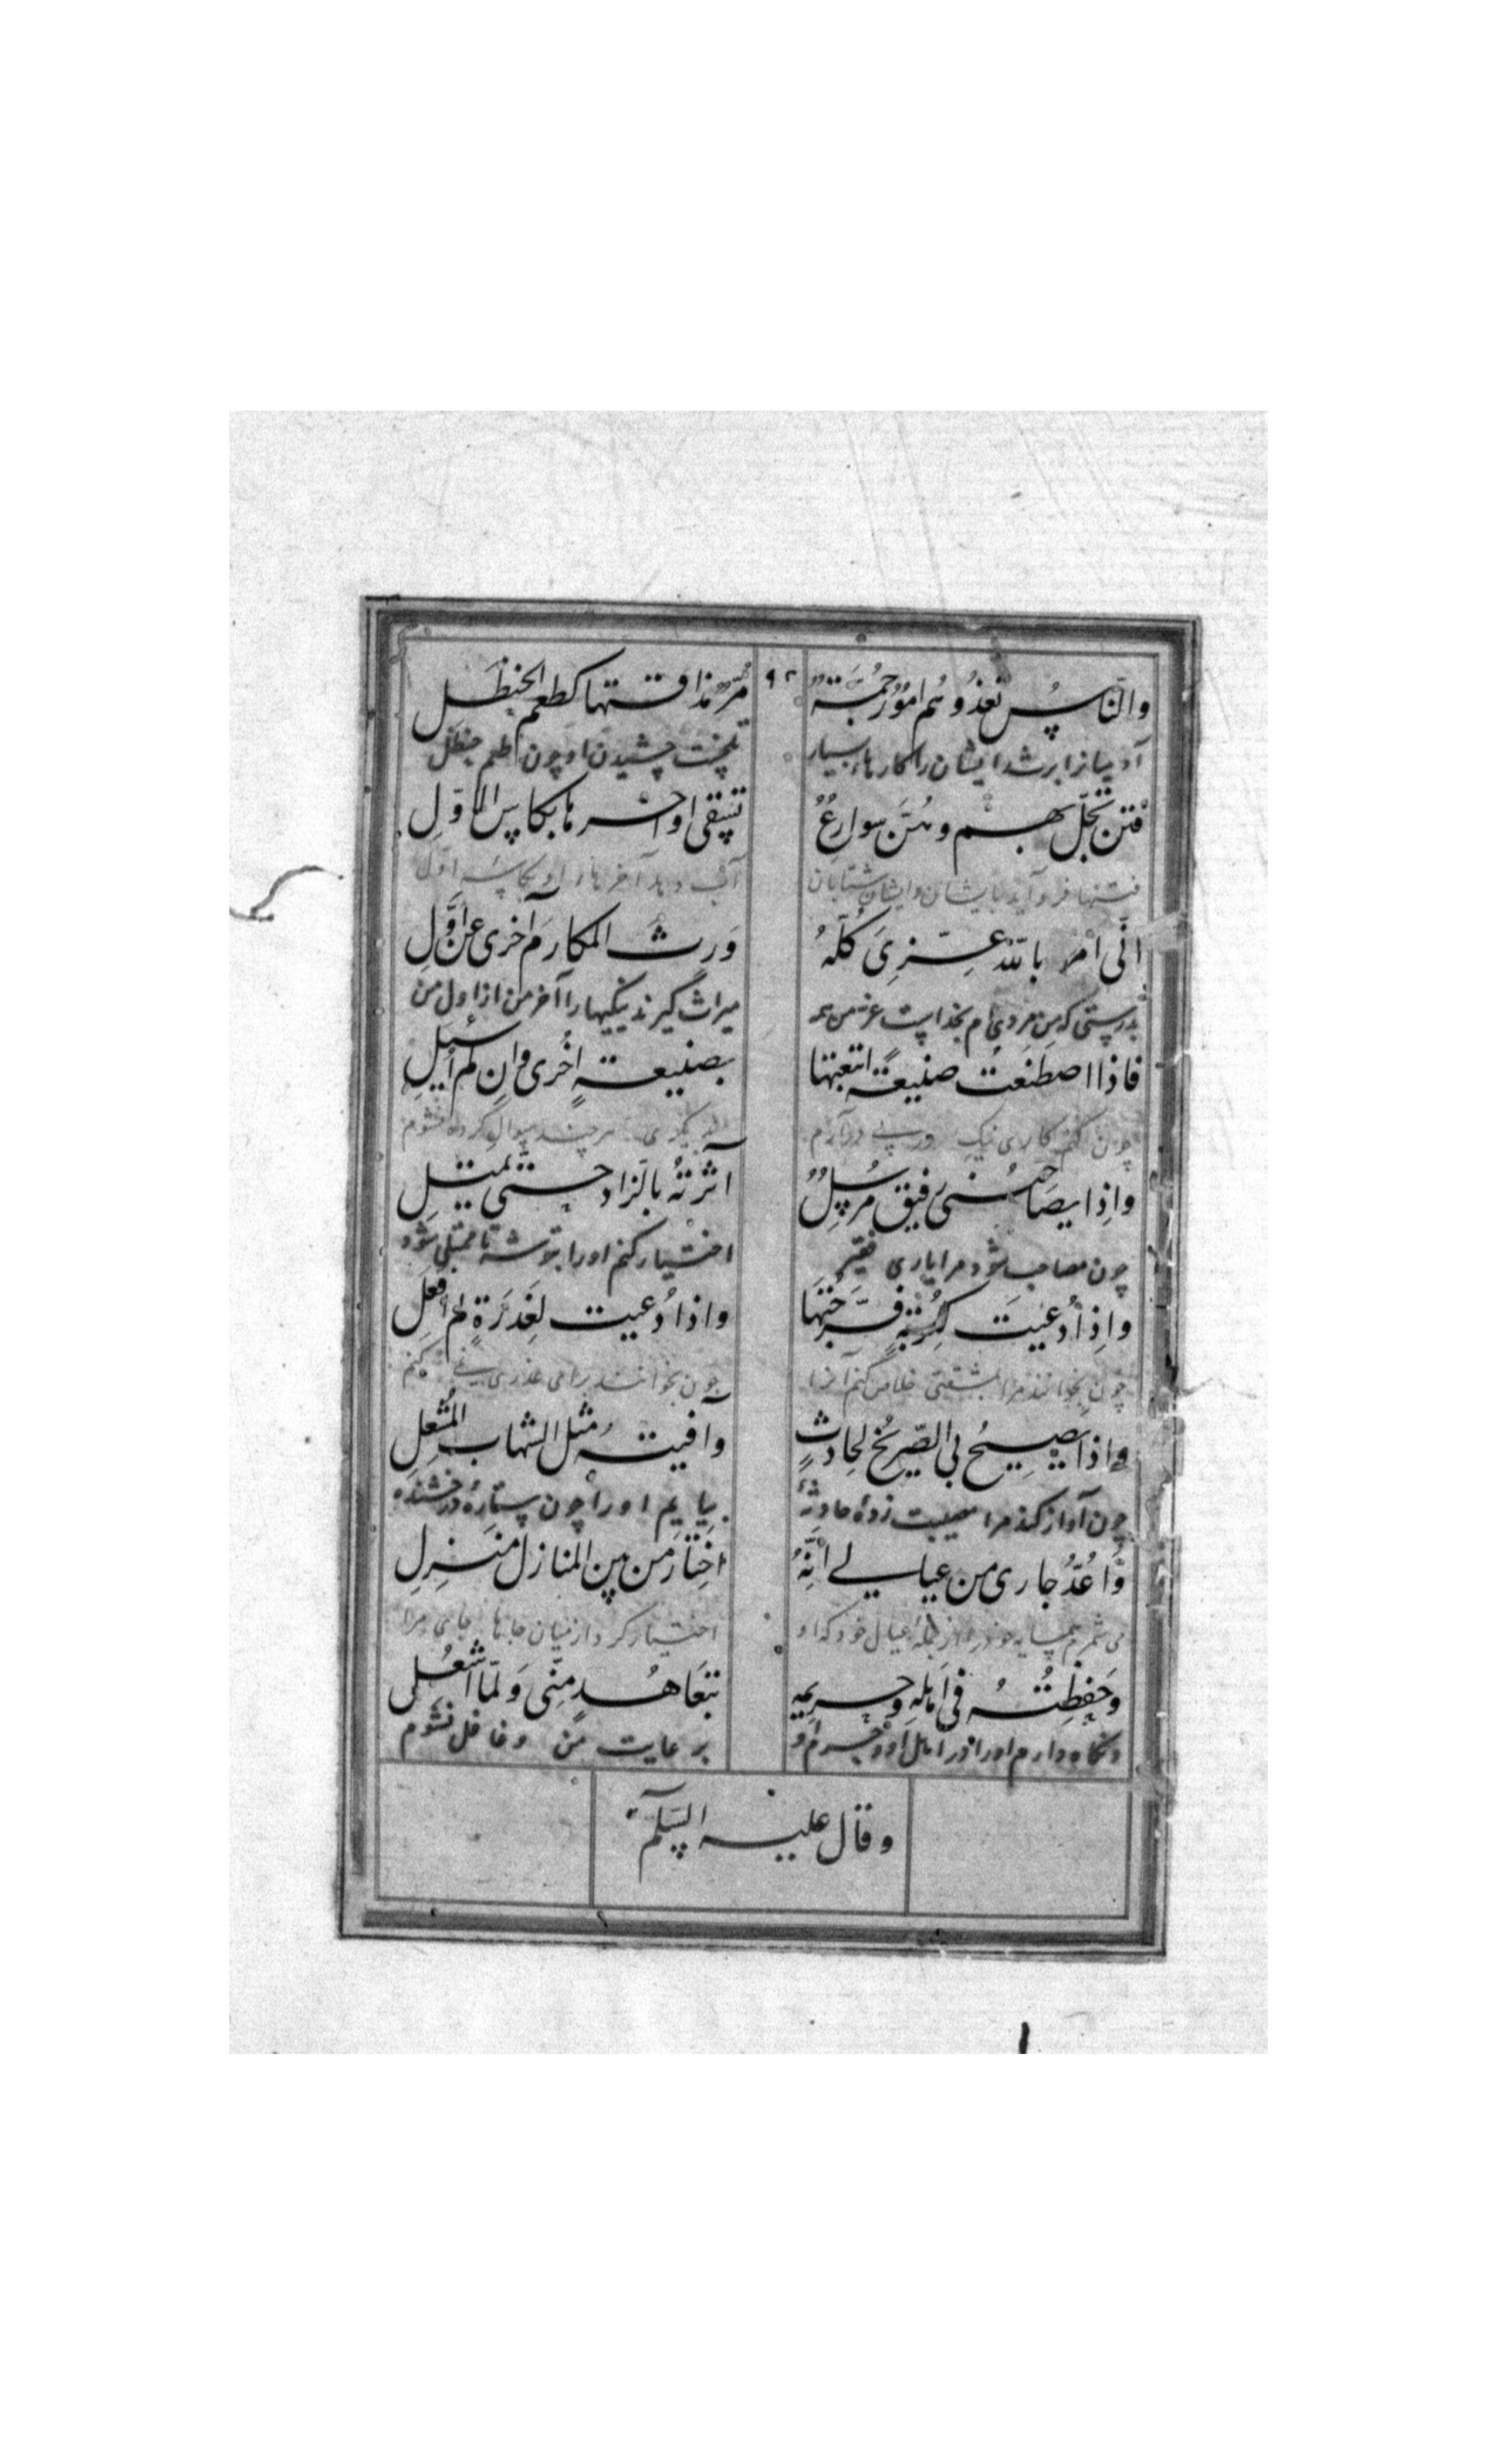 ۹۲
والنّاس تغذوهُم امُورٌ جُمَّةٌ مُرٌّ مذاقتها كطعم الحنظل
آدمیانرا برشد ایشان را کارهاء بسیار تلخست چشیدن او چون طعم حنظل
فتن تَحُلّ بهم وهُنَّ سوارعٌ تسقى اواخرها بكاس الاوّلِ
فتنها فرو آید بایشان وایشان شتابان آب دهد آخرها را او بکاسه اول
انّى امرؤ بالله عِزّىَ كُلّهُ وَرِث المكارمَ آخرى عن اوَّلِ
بدرستی که من مردی ام بخداست عز من همه میراث گیرند نیکیها را آخر من از اول من
فاذا اصطنَعتُ صنيعةً اتبعتها بصنيعةٍ اخُرى وان لم اُسئلِ
چون کنم کاری نیک در پی در آرم دیگری هر چند سوال کرده نشوم
واذا يصاحبنى رفيق مُرسِلٌ آثرتهُ بالزّاد حتّى يمتلِ
چون مصاحب شود مرا یاری فقیر اختیار کنم او را بتوشه تا ممتلی شود
واذا دُعيتَ لكُربةٍ فرّجتها واذا دُعيت لغَدرَةٍ لم افعَلِ
چون بخوانند مرا بمشقتی خلاص کنم آنرا چون بخوانند برای غدری نی کنم
واذا يصيحُ بى الصّريخُ لحادثٍ وآفيته مثل الشهاب المُشعِلِ
چون آواز کند مرا مصیبت زدهٔ حادثهٔ بیایم او را چون ستارهٔ درخشنده
واُعُدُّ جارى من عيالي انّهُ اختارَ من بين المنازل منزلِ
می شمرم همسایه خود را از جملهٔ عیال خود که او اختیار کرد از میان جاها جای مرا
وحفظتهُ فى اهلهِ وحريمهِ بتعاهُدٍ منّى وَلمّا اشغُلى
ونگاه دارم او را در اهل او و حرم او برعایت من وغافل نشوم
وقال عليه السّلم